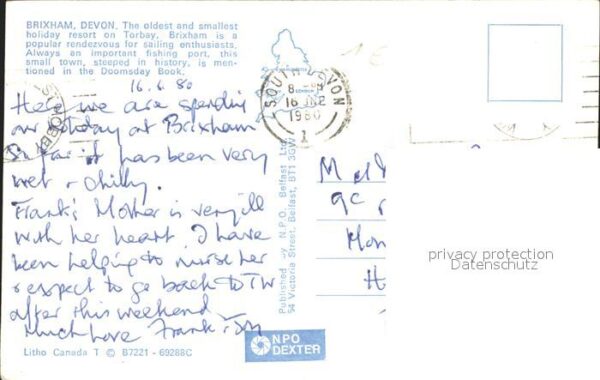 BRIXHAM, DEVON. The oldest and smallest
holiday resort on Torbay, Brixham is a
popular rendezvous for sailing enthusiasts.
Always an important fishing port, this
small town, steeped in history, is men-
tioned in the Doomsday Book.
16.6.80
Here we are spending
our holiday at Brixham
So far it has been very
wet + chilly.
Frank's Mother is very ill
with her heart. I have
been helping to nurse her
expect to go back to TW
after this weekend
Much Love Frank +
SOUTH DEVON
16
1980
1
Published by N.P.O. Belfast Ltd.
54 Victoria Street, Belfast, BT1 3GW
9c
privacy protection
Datenschutz
NPO
DEXTER
Litho Canada T © B7221 - 69288C